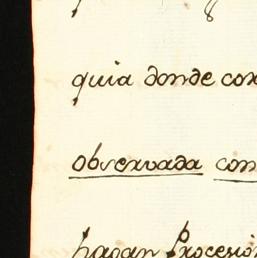 quia donde con
observada con
hagan Procesion